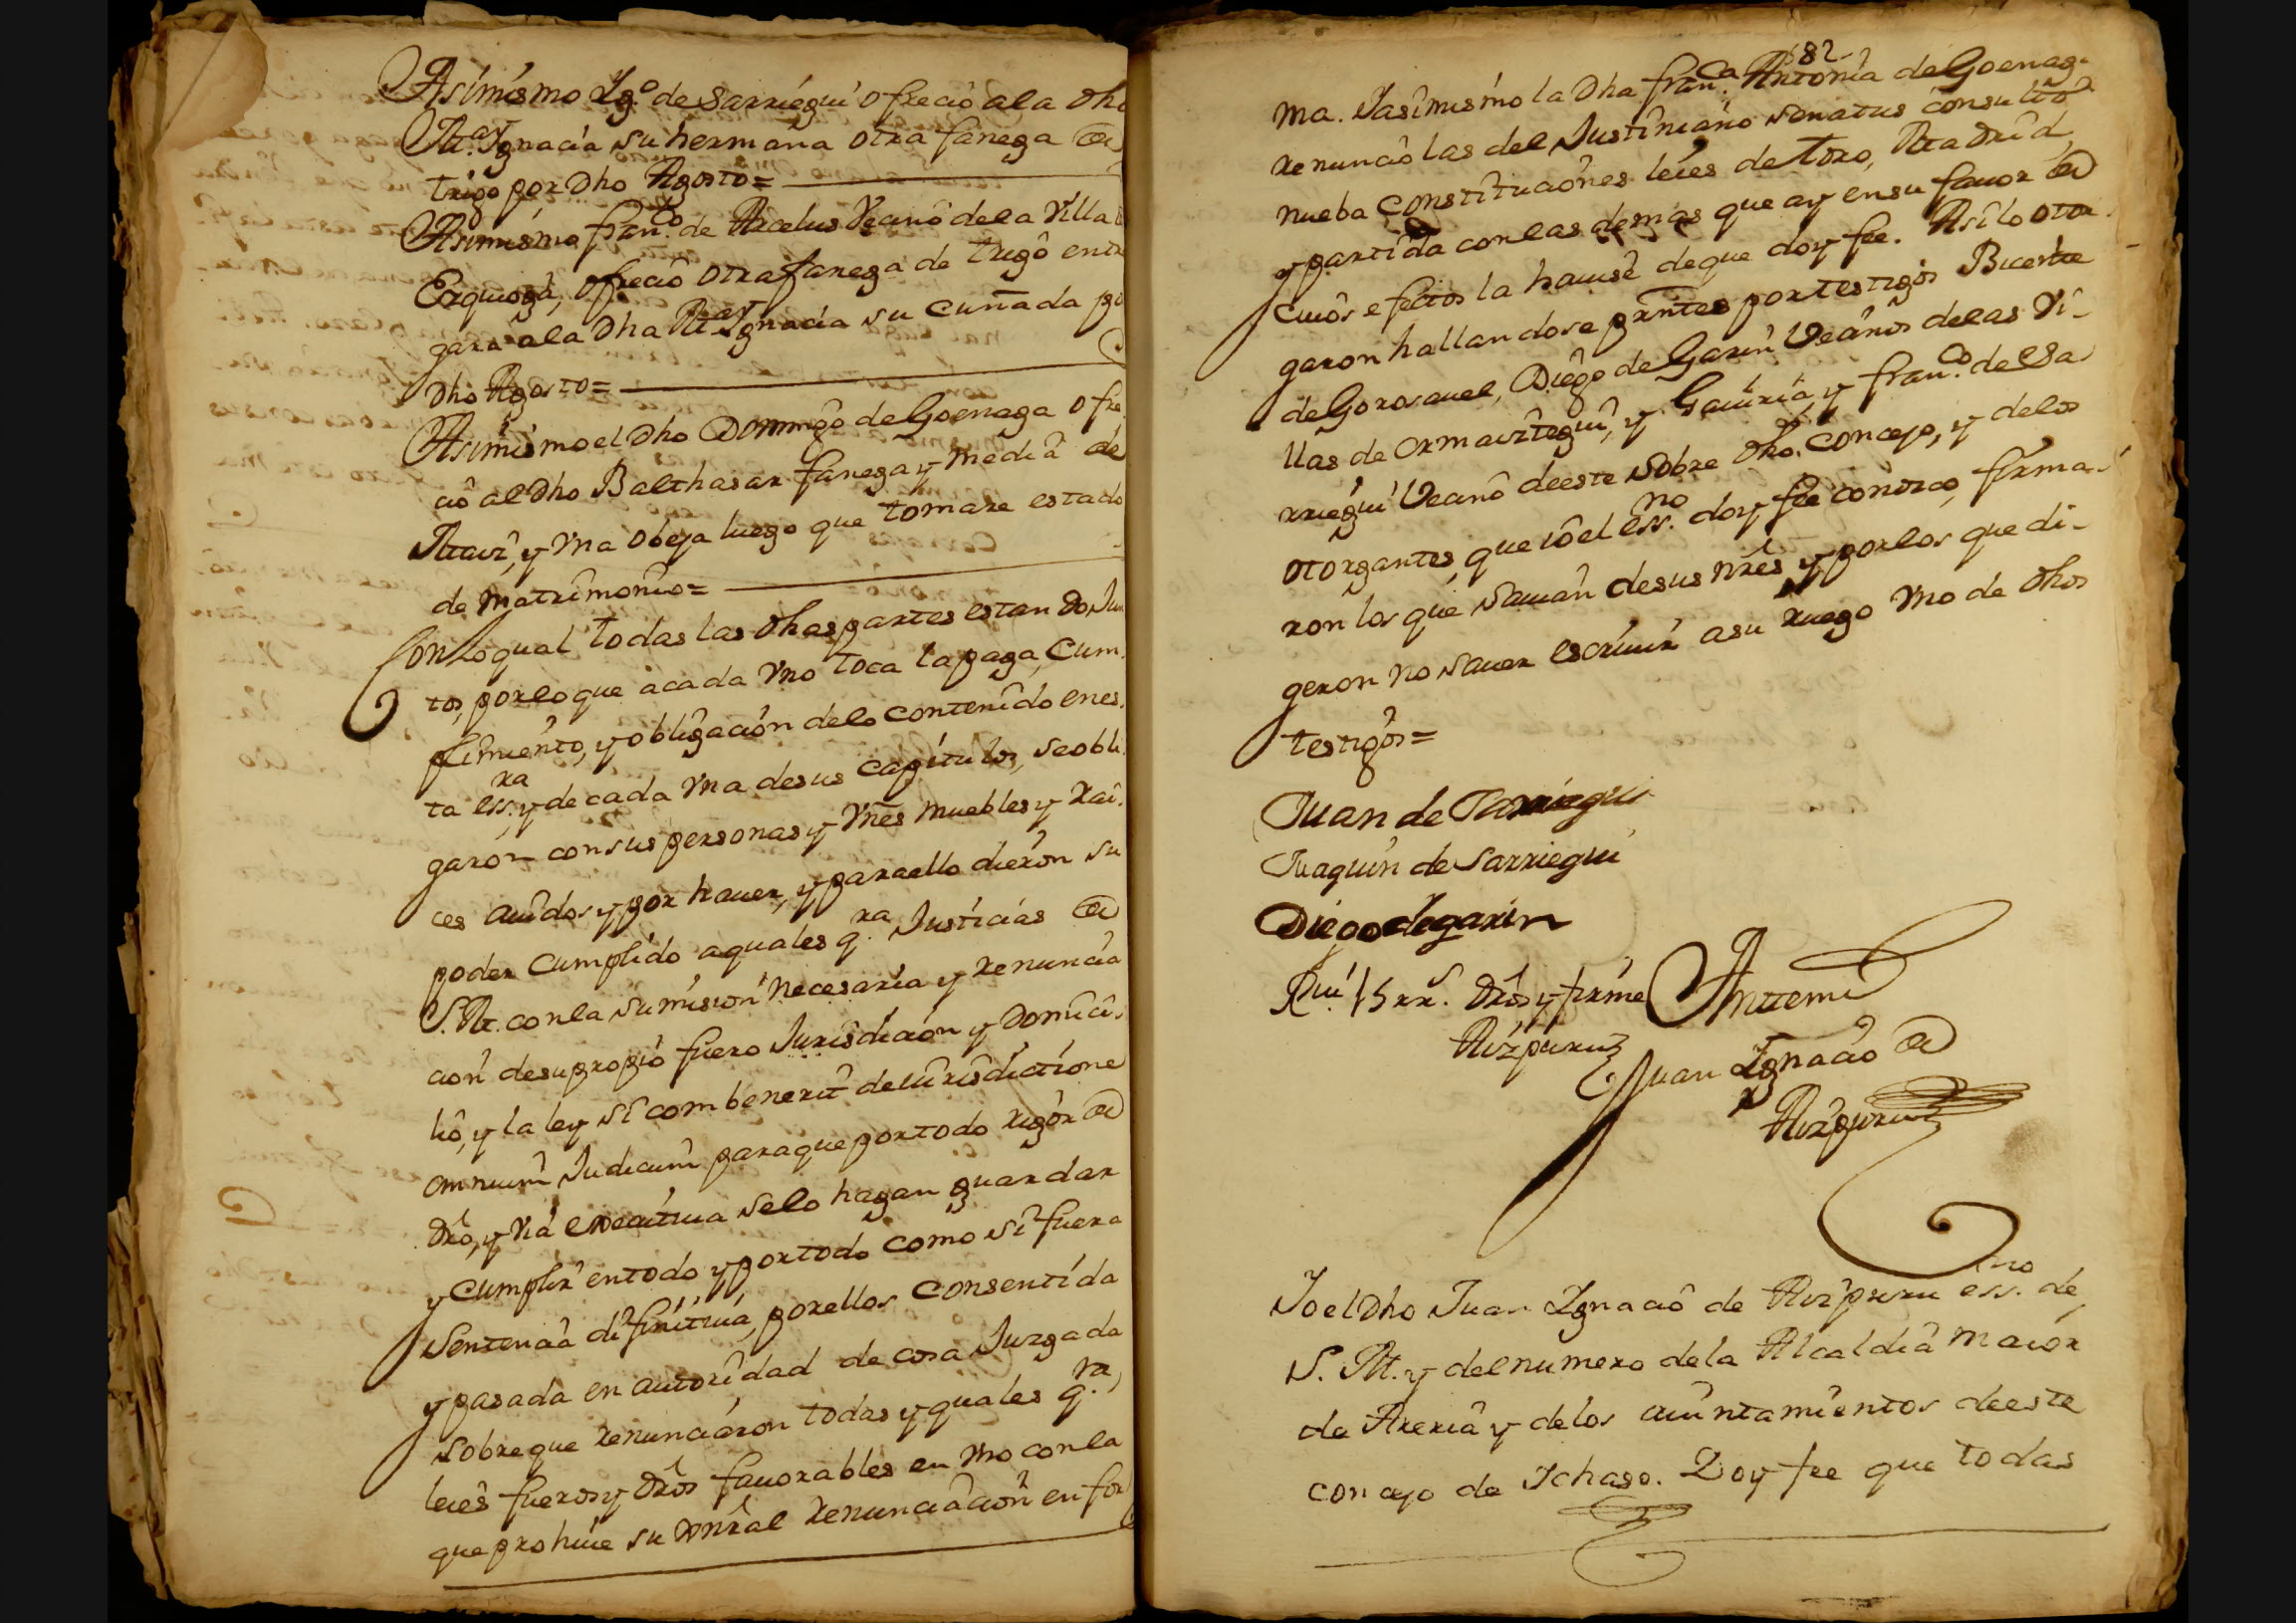 Asimismo Ygº de Sarriegui ofrecio ala dha
Mª Ygnacia su hermana otra fanega de
trigo por dho Agosto=
Asimismo franco de Arcelus Vecino dela Villa
Ezquioga, ofrecio otra fanega de trigo entre
gara ala dha Mª Ygnacia su cuñada po
dho Agosto=
Asimismo el dho Domingo de Goenaga ofre
cio al dho Balthasar fanega y media de
Maiz, y una obeja luego que tomare estado
de matrimonio=
Con lo qual todas las dhas partes estando Jun
tos, por lo que acada uno toca la paga, Cum
plimiento, y obligacion delo contenido enes
ta essra y de cada una desus capitulos, se obli
garon con sus personas y vnes muebles y Rai
ces auidos y por hauer, y paraello dieron su
poder cumplido aquales qra Justicias de
S. M. conla sumision necesaria y renuncia
cion desu propio fuero Jurisdicion y domici
lio, y la ley si combenerit de iurisdictione
omnium Judicum paraque por todo rigor de
dro, y via executiua selo hagan guardar
y cumplir entodo y portodo como si fuera
Sentencia difinitiua, porellos consentida
y pasada en autoridad de cosa Juzgada
sobreque renunciaron todas y quales qra
leies fueros y dros fauorables en uno conla
que prohiue su gnral renunciacion en for
182
ma. Yasimismo la dha franca Antonia de Goenaga
renuncio las del Justiniano senatus consulto
nueba constituciones leies de Toro, Madrid,
y partida conlas demas que ay ensu fauor de
cuios efectos la hauise deque doy fee. Asi lo otor
garon hallandose prntes por testigos Bicente
de Gorosauel, Diego de Garin Vecinos delas Vi-
llas de Ormaiztegui, y Gauiria y franco de Sa
rriegui Vecino deeste sobre dho. Concejo, y delos
otorgantes, que io el essno doy fee conozco, firma-
ron los que sauian desus nres y porlos que di-
geron no sauer escriuir asu ruego uno de dhos
testigos=
Juan de Sarriegui
Juaquin de Sarriegui
Diego de garin
Rui 15 rrs. dros y firme Antemi
Aizpuru
Juan Ygnacio de
Aizpuru
Yo el dho Juan Ygnacio de Aizpuru essno de
S. M. y del numero dela Alcaldia maior
de Areria y delos aiuntamientos deeste
concejo de Ichaso. Doy fee que todas